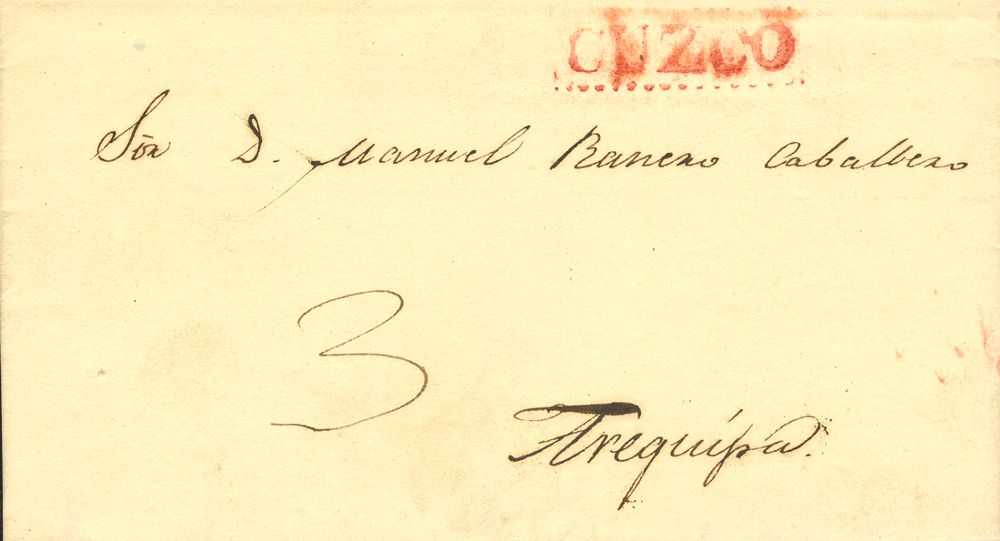 CUZCO
Sōr D. Manuel Ranero Caballero
3
Arequipa.